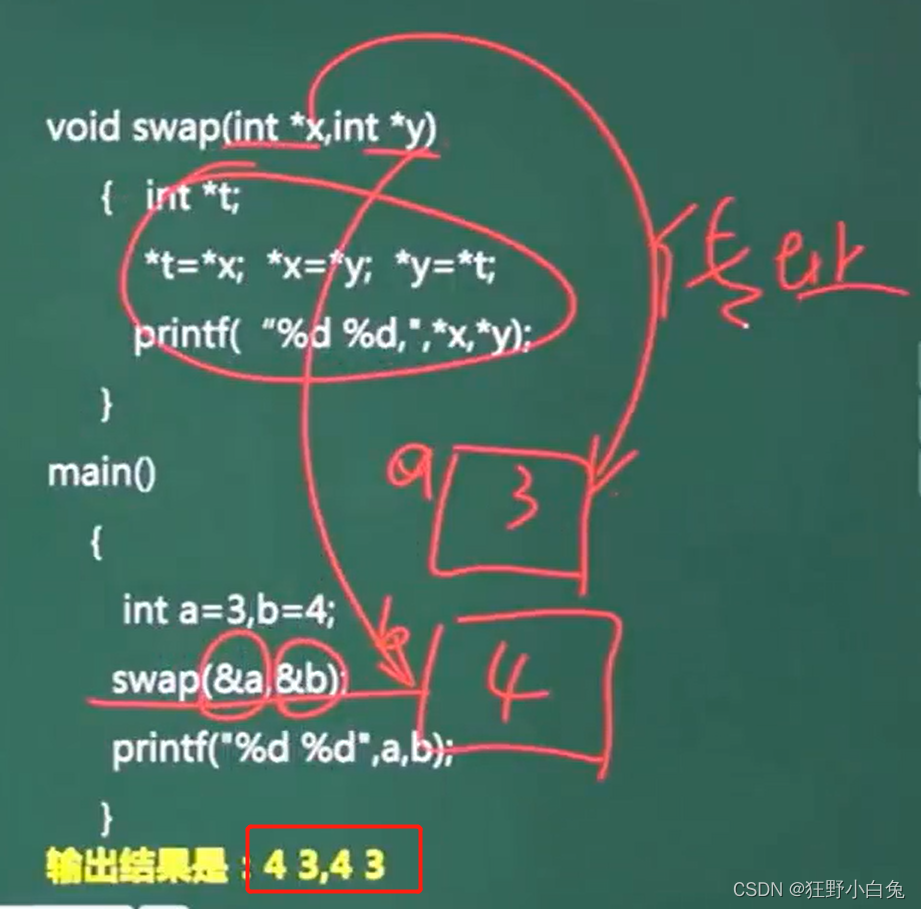 void swap(int *x,int *y)
{ int *t;
*t=*x; *x=*y; *y=*t;
printf( “%d %d,",*x,*y);
}
main()
{
int a=3,b=4;
swap(&a,&b);
printf("%d %d",a,b);
}
输出结果是：4 3,4 3
传址
a 3
b 4
CSDN @狂野小白兔